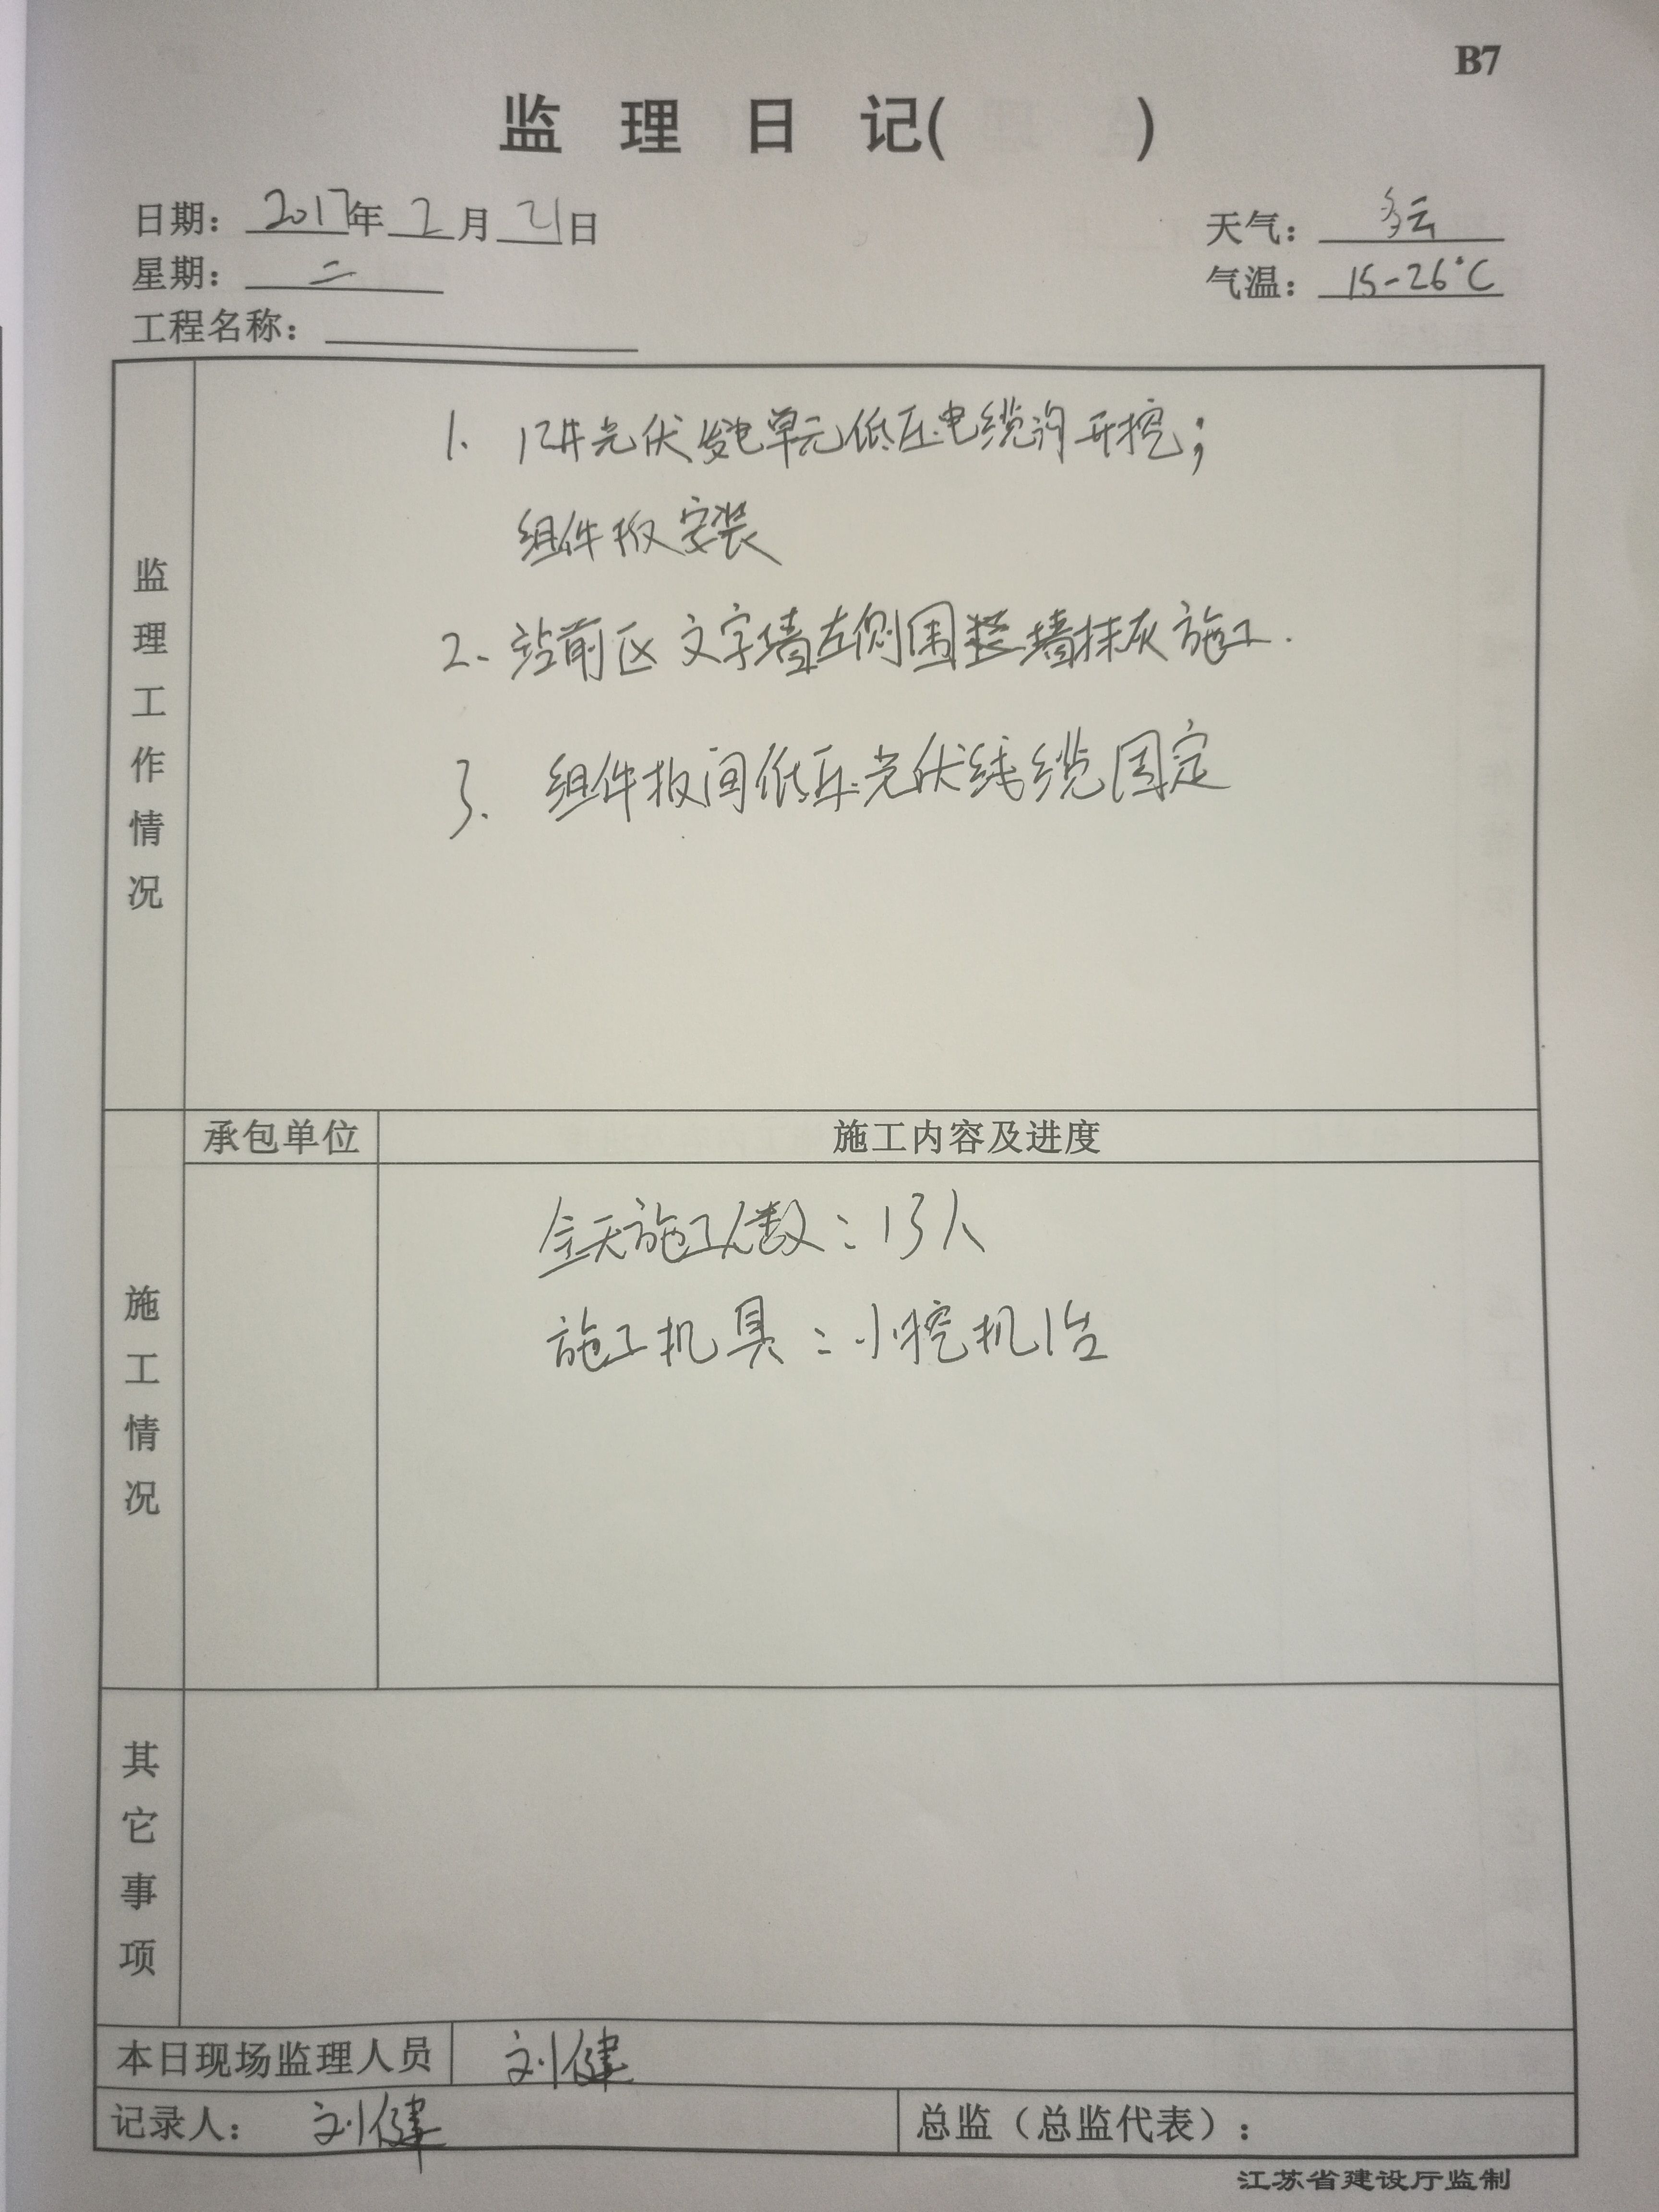 B7
监理日记( )
日期：2017年2月21日
天气：多云
星期：二
气温：15-26℃
工程名称：
监理工作情况
1. 12#光伏发电单元低压电缆沟开挖；
组件板安装
2. 站前区文字墙左侧围墙抹灰施工.
3. 组件板间低压光伏线缆固定
施工情况
承包单位 施工内容及进度
全天施工人数：13人
施工机具：小挖机1台
其它事项
本日现场监理人员 刘健
记录人：刘健 总监（总监代表）：
江苏省建设厅监制